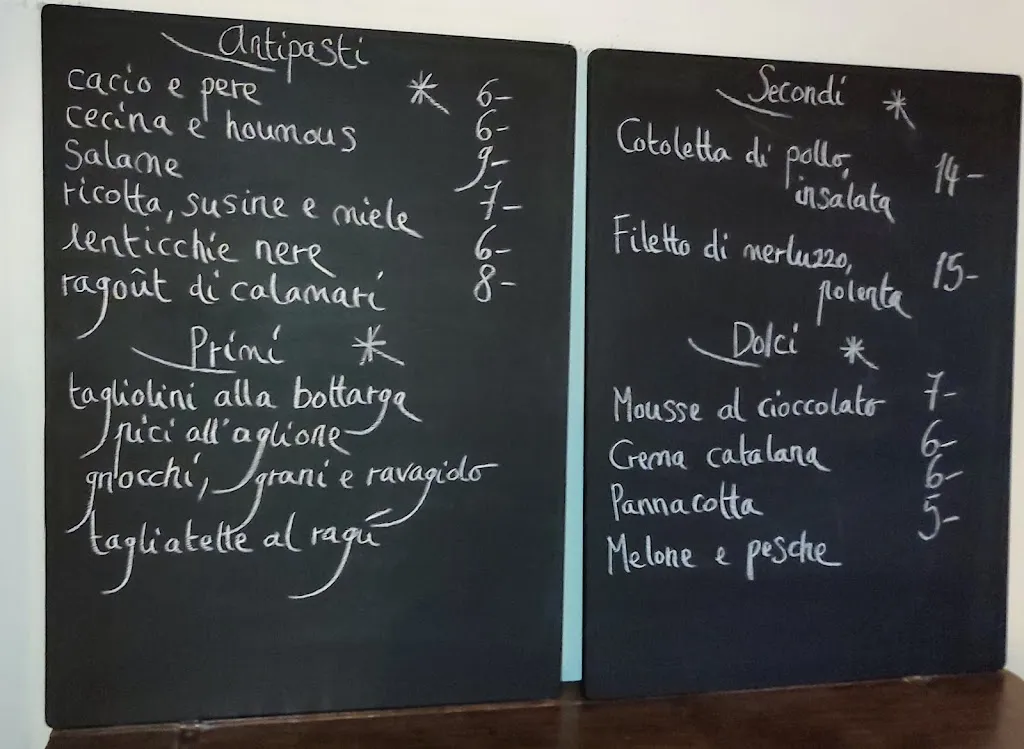 Antipasti *
cacio e pere 6-
cecina e houmous 6-
Salame 9-
ricotta, susine e miele 7-
lenticchie nere 6-
ragoût di calamari 8-
Primi *
tagliolini alla bottarga
pici all'aglione
gnocchi, grani e ravagiolo
tagliatelle al ragú
Secondi *
Cotoletta di pollo, 14-
insalata
Filetto di merluzzo, 15-
polenta
Dolci *
Mousse al cioccolato 7-
Crema catalana 6-
Pannacotta 6-
Melone e pesche 5-